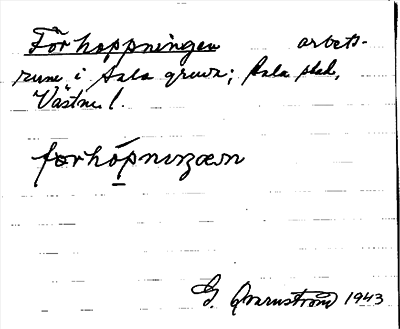 Förhoppningen arbets-
rum i Sala gruva; Sala stad,
Västm l.
førhópnıŋæn
G. Qvarnström 1943